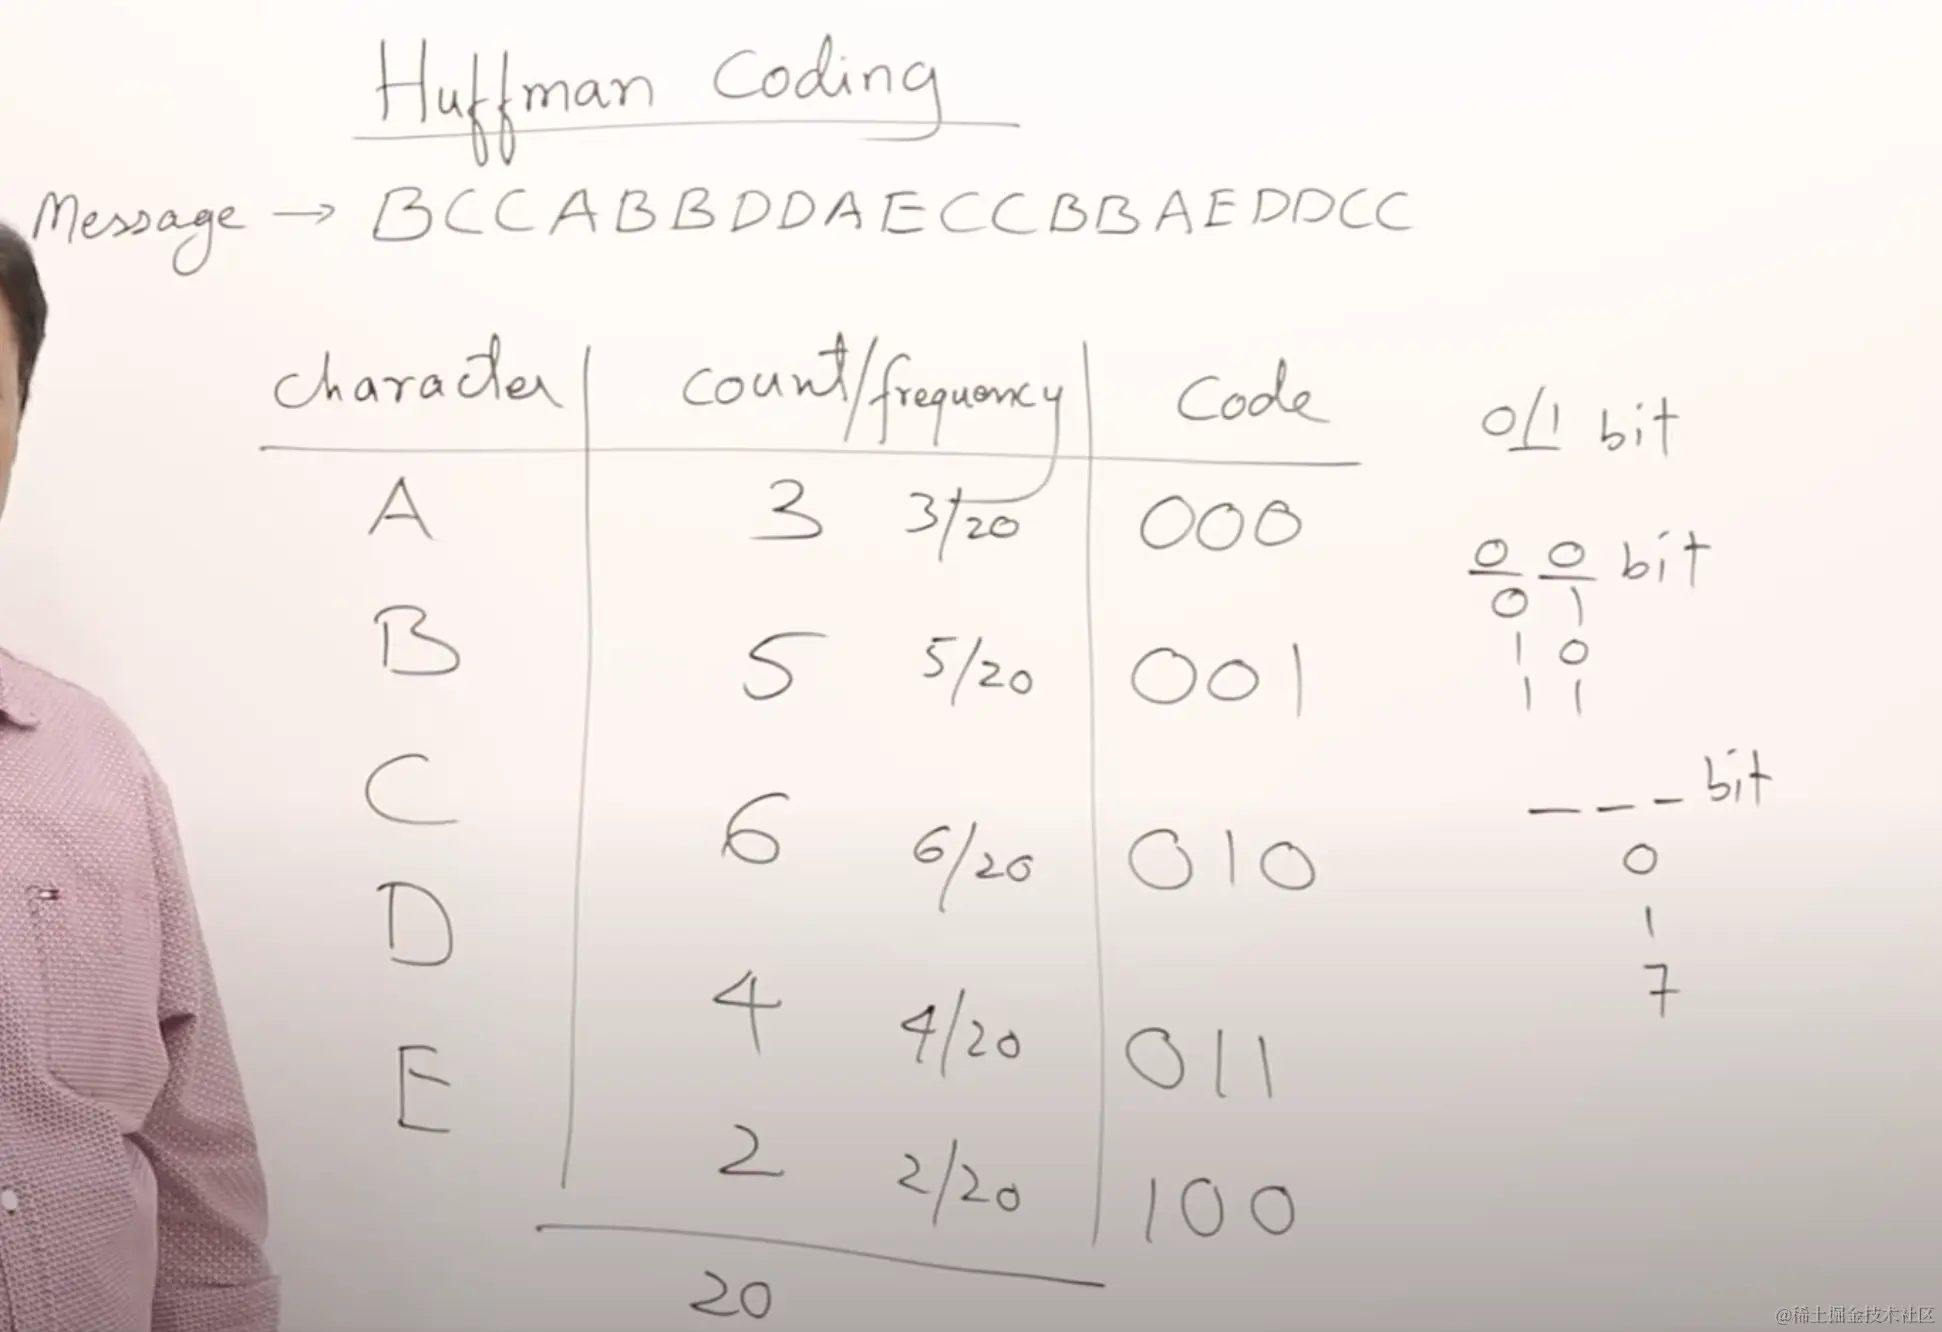 Huffman Coding
Message → BCCABBDDAECCBBAEDDCC
Character count/frequency Code
0/1 bit
A 3 3/20 000
0 0 bit
0 1
B 5 5/20 001
1 0
1 1
_ _ _ bit
C 6 6/20 010
0
1
D 4 4/20 011
7
E 2 2/20 100
20
@稀土掘金技术社区